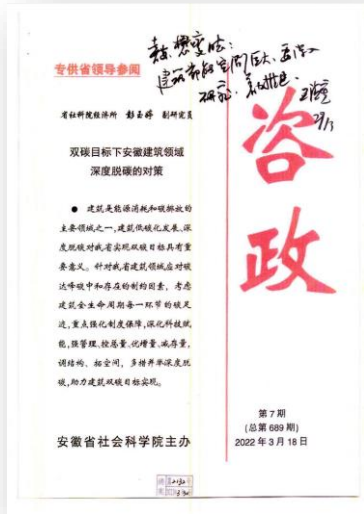 专供省领导参阅
省社科院经济所 彭玉婷 副研究员
双碳目标下安徽建筑领域
深度脱碳的对策
● 建筑是能源消耗和碳排放的
主要领域之一,建筑低碳化发展、深
度脱碳对我省实现双碳目标具有重
要意义。针对我省建筑领域应对碳
达峰碳中和存在的制约因素,考虑
建筑全生命周期每一环节的碳足
迹,重点强化制度保障,深化科技赋
能,强管理、控总量、优增量、减存量,
调结构、拓空间,多措并举深度脱
碳,助力建筑双碳目标实现。
安徽省社会科学院主办
咨政
第7期
(总第689期)
2022年3月18日